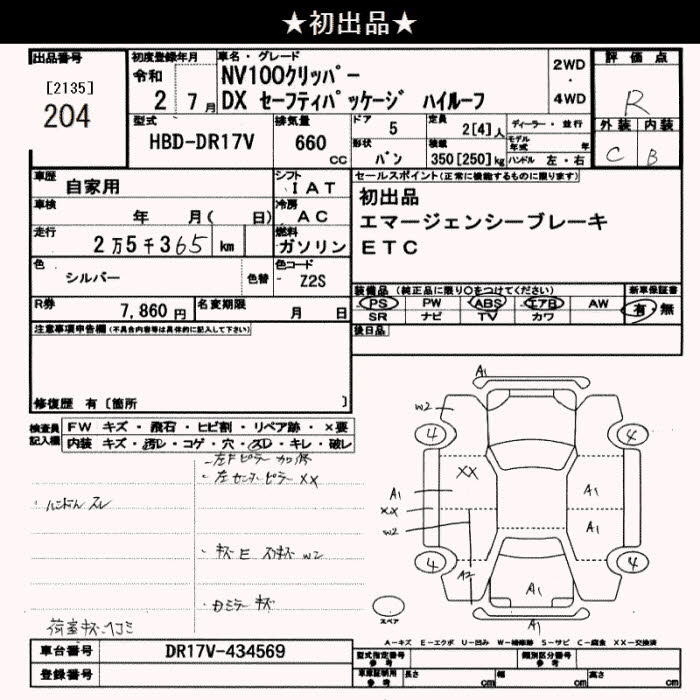 ★初出品★
出品番号
[2135]
204
初度登録年月
令和
2 7月
車名・グレード
NV100クリッパー
DX セーフティパッケージ ハイルーフ
2WD
・
4WD
評価点
R
外装 内装
C B
型式
HBD-DR17V
排気量
660
cc
ドア
5
定員
2[4]人
ディーラー・並行
形状
バン
積載
350[250]kg
モデル年式 年
ハンドル 左・右
車歴
自家用
シフト
IAT
車検
年 月( 日)
冷房
AC
走行
2万5千365km
燃料
ガソリン
色
シルバー
色替
色コード
Z2S
R券
7,860円
名変期限
月 日
セールスポイント(正常に機能するものに限ります)
初出品
エマージェンシーブレーキ
ETC
装備品(純正品に限り○をつけてください)
PS PW ABS エアB AW
SR ナビ TV カワ
新車保証書
有・無
後日品
注意事項申告欄(不具合内容等は具体的に記入して下さい)
修復歴 有[箇所 ]
検査員記入欄
FW キズ・飛石・ヒビ割・リペア跡・×要
内装 キズ・汚レ・コゲ・穴・スレ・キレ・破レ
・左Fピラー 加修
・左センターピラー XX
・ハンドル スレ
・キズ E スリキズ W2
・カミラー キズ
荷室キズ・ヘコミ
A1
W2
4
4
XX
A1
XX
W2
A1
A1
4
4
A2
A1
A1
スペア
A-キズ E-エクボ U-凹み W-補修跡 S-サビ C-腐食 XX-交換済
車台番号
DR17V-434569
登録番号
型式指定番号
参考
類別区分番号
参考
車庫証明用
参考
長さ cm
幅 cm
高さ cm